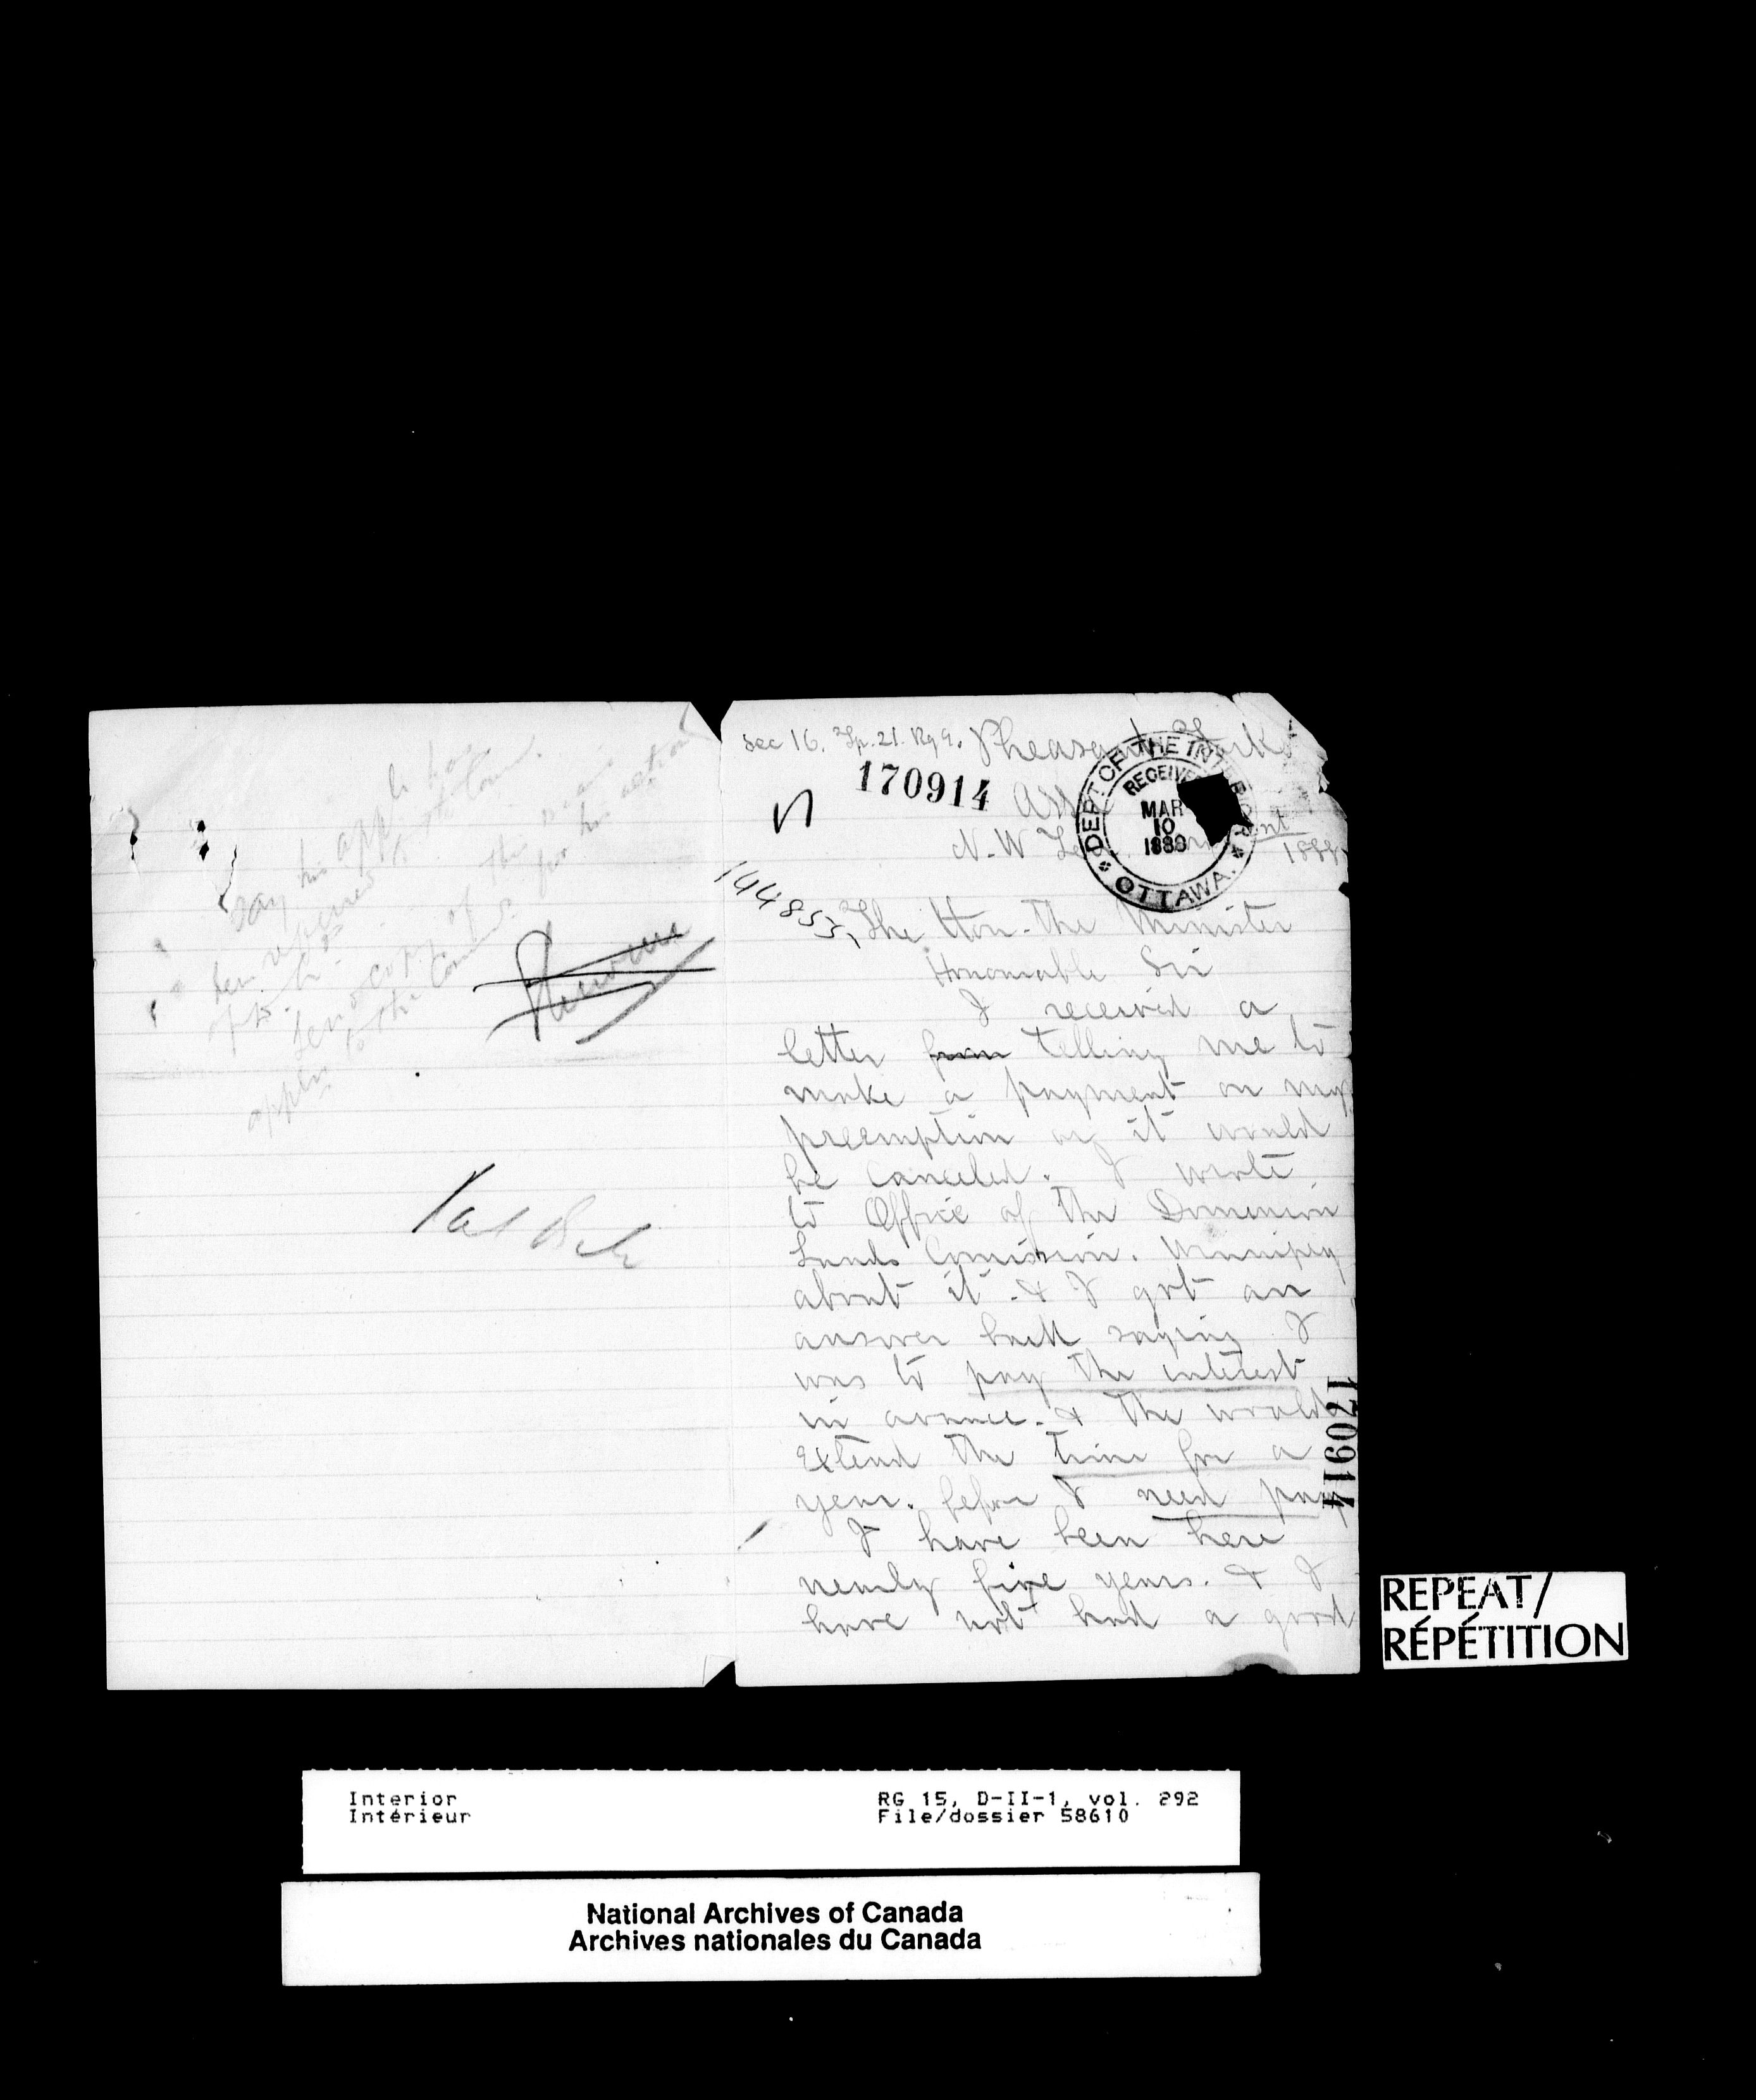 Say his appli has
been referred to the Com.
of D. L.
Send copy of this
appln to the Commr. for his action
Sec 16. Tp. 21. Rg 9. Pheasant Forks
170914
Assa
N-W Ter
1888
144853,
DEPT. OF THE INTERIOR
RECEIVED
MAR
10
1888
OTTAWA.
The Hon. The Minister
Honorable Sir
I received a
letter from telling me to
make a payment on my
preemption or it would
be canceled. I wrote
to Office of the Dominion
Lands Comission. Winnipeg
about it. & I got an
answer back saying I
was to pay the interest
in avance. & the would
extend the time for a
year. before I need pay
I have been here
nearly five years. & I
have not had a good
170914
REPEAT/
RÉPÉTITION
Interior RG 15, D-II-1, vol. 292
Intérieur File/dossier 58610
National Archives of Canada
Archives nationales du Canada